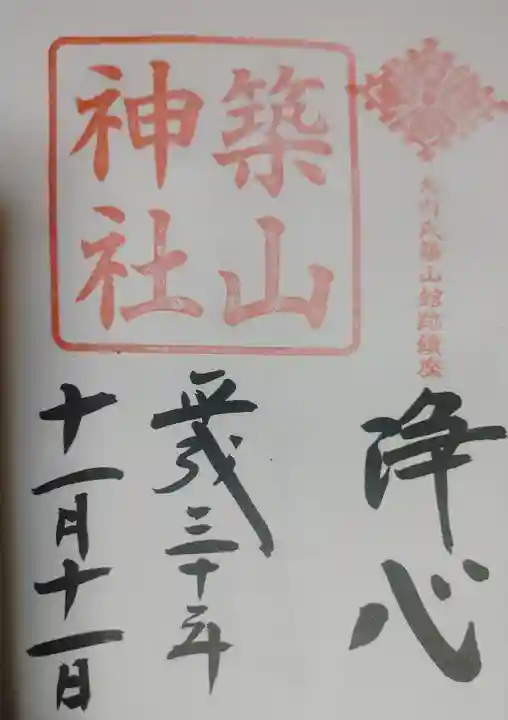 大内氏築山館跡鎮座
浄心
築山
神社
平成三十年
十一月十一日